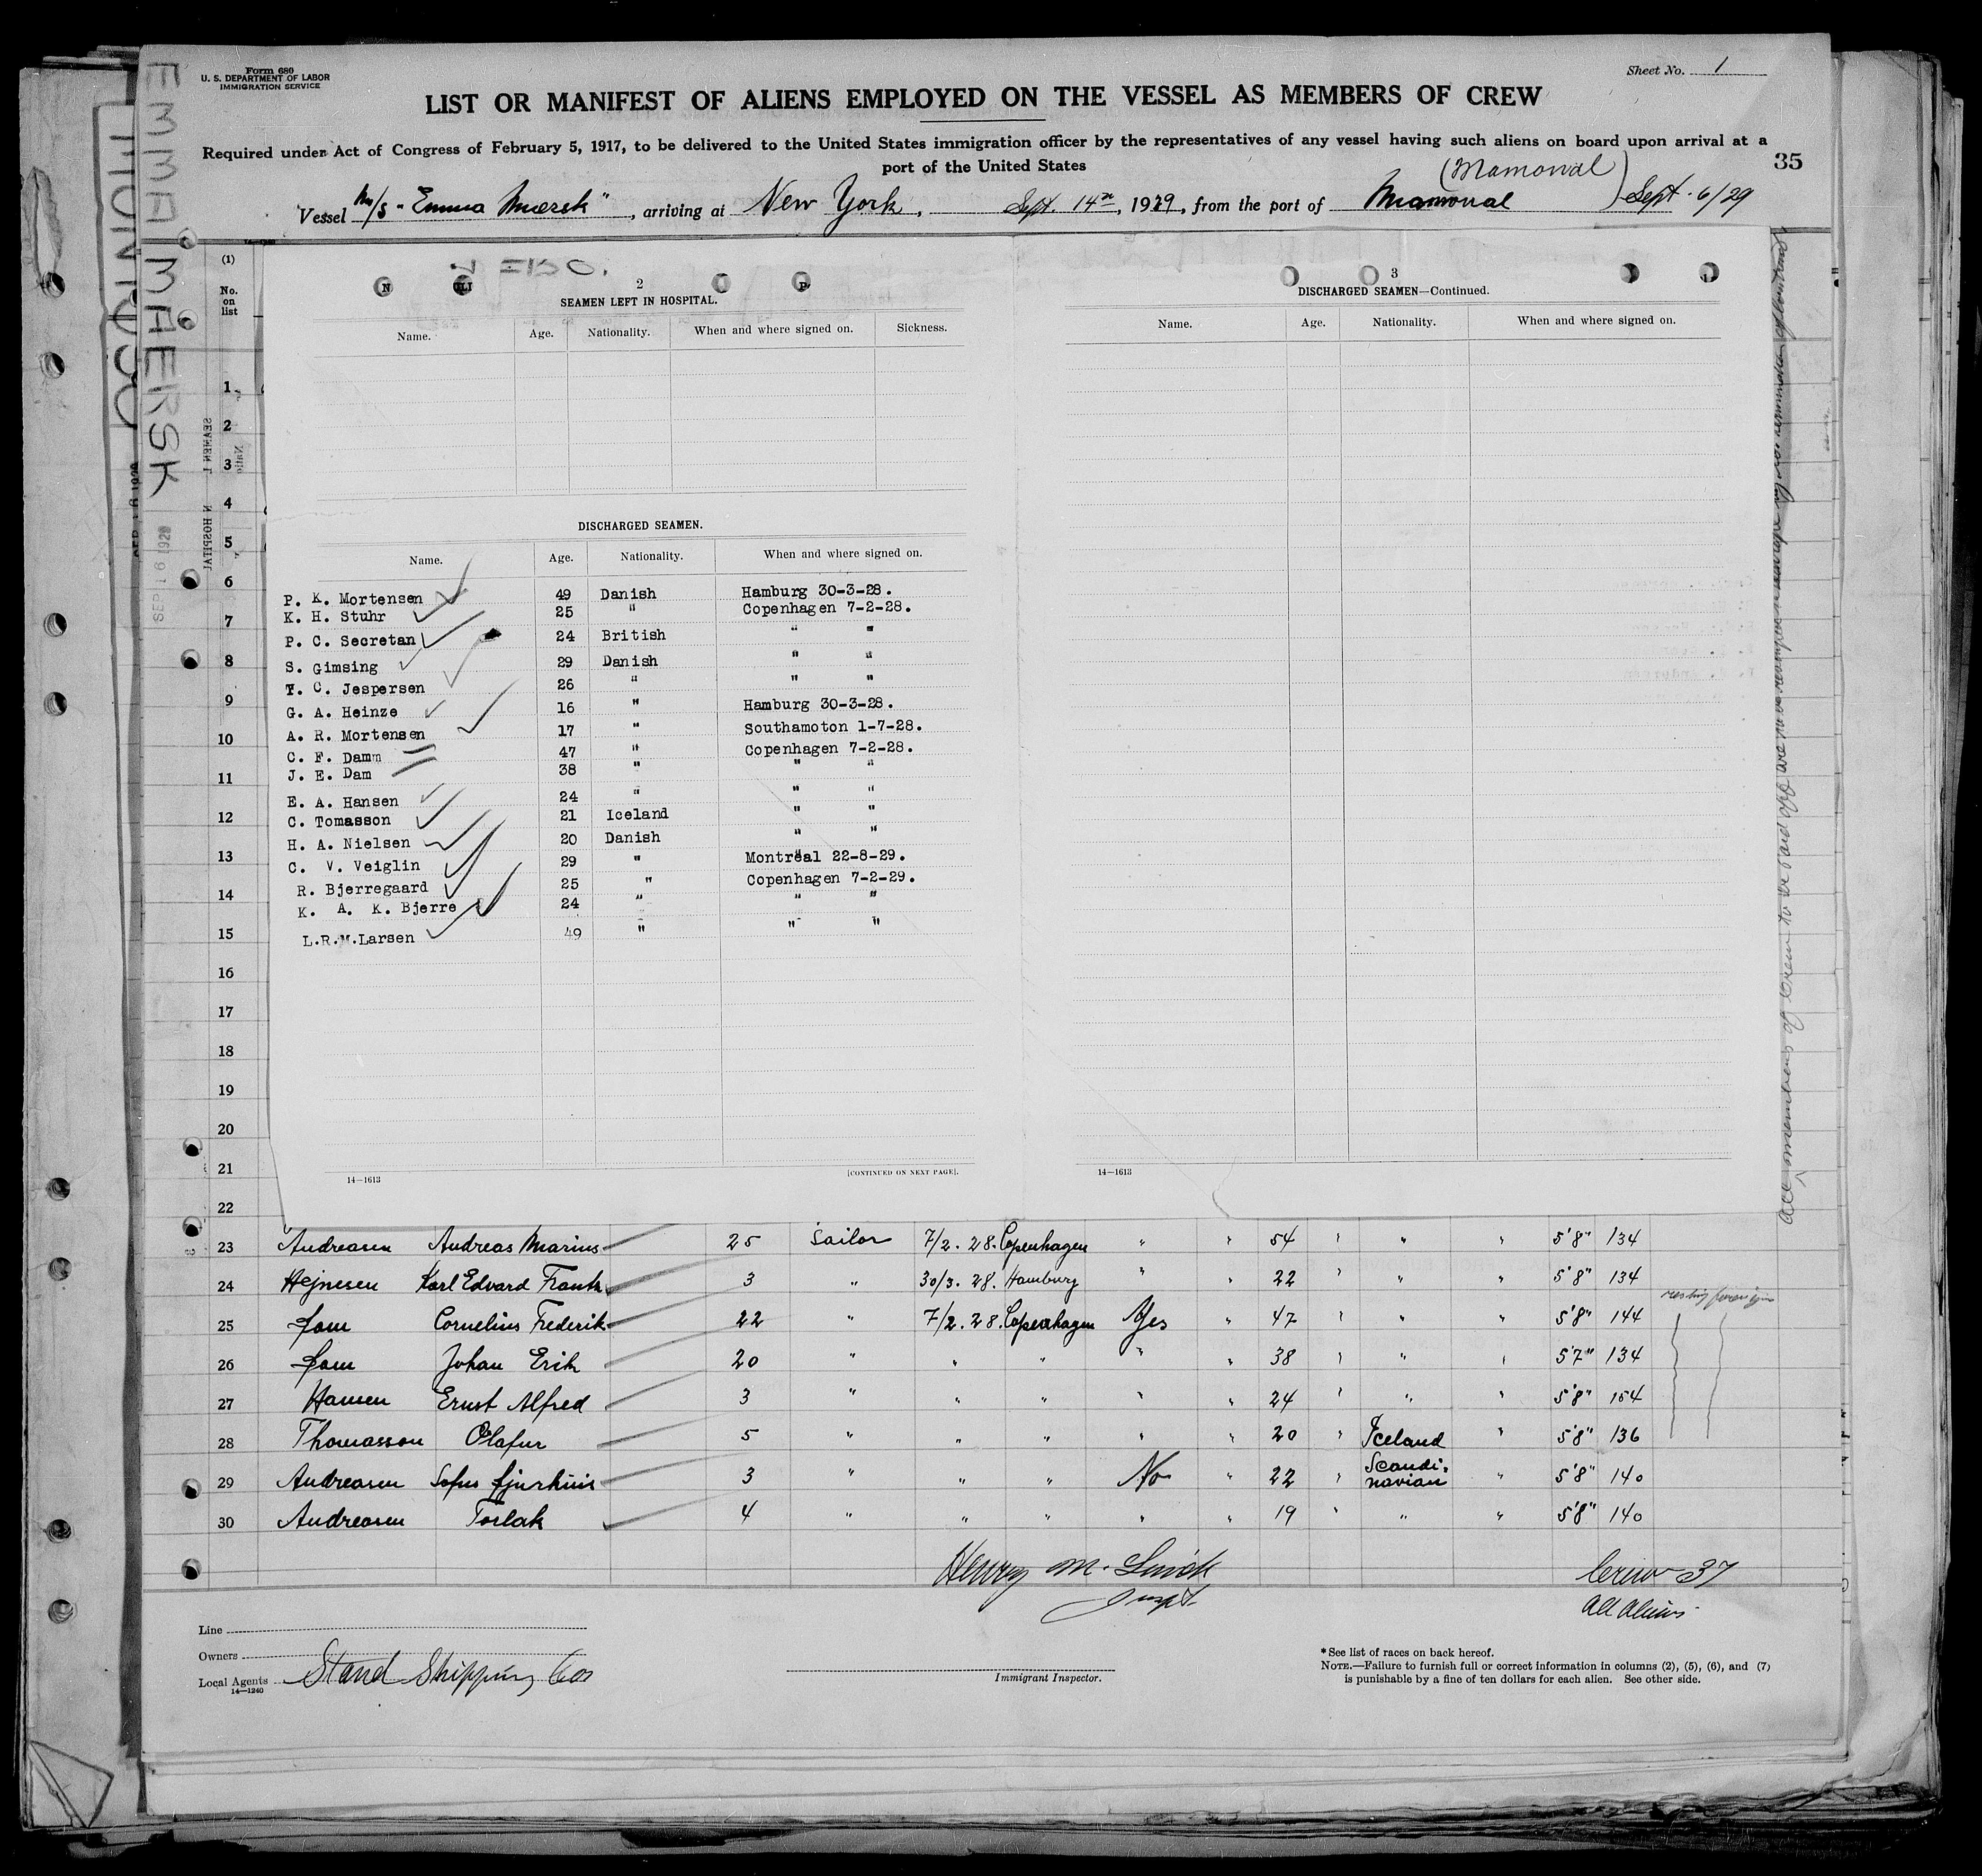 Form 680
U. S. DEPARTMENT OF LABOR
IMMIGRATION SERVICE
Sheet No. 1
LIST OR MANIFEST OF ALIENS EMPLOYED ON THE VESSEL AS MEMBERS OF CREW
Required under Act of Congress of February 5, 1917, to be delivered to the United States immigration officer by the representatives of any vessel having such aliens on board upon arrival at a
port of the United States
35
(Mamonal)
Vessel M/S "Emma Mærsk", arriving at New York, Sept. 14th, 1929, from the port of Mamonal Sept. 6/29
EMMA MAERSK
SEP 16 1929
(1)
No. on list
2
SEAMEN LEFT IN HOSPITAL.
Name. Age. Nationality. When and where signed on. Sickness.
DISCHARGED SEAMEN.
Name. Age. Nationality. When and where signed on.
P. K. Mortensen 49 Danish Hamburg 30-3-28.
K. H. Stuhr 25 " Copenhagen 7-2-28.
P. C. Secretan 24 British " "
S. Gimsing 29 Danish " "
T. C. Jespersen 26 " " "
G. A. Heinze 16 " Hamburg 30-3-28.
A. R. Mortensen 17 " Southamoton 1-7-28.
C. F. Damm 47 " Copenhagen 7-2-28.
J. E. Dam 38 " " "
E. A. Hansen 24 " " "
C. Tomasson 21 Iceland " "
H. A. Nielsen 20 Danish " "
C. V. Veiglin 29 " Montreal 22-8-29.
R. Bjerregaard 25 " Copenhagen 7-2-29.
K. A. K. Bjerre 24 " " "
L.R.M.Larsen 49 " " "
14—1613
[CONTINUED ON NEXT PAGE].
3
DISCHARGED SEAMEN—Continued.
Name. Age. Nationality. When and where signed on.
14—1613
1
2
3
4
5
6
7
8
9
10
11
12
13
14
15
16
17
18
19
20
21
22
23 Andreasen Andreas Marius 25 Sailor 7/2. 28. Copenhagen " " 54 " " " 5'8" 134
24 Hejnesen Karl Edvard Frantz 3 " 30/3. 28. Hamburg " " 22 " " " 5'8" 134
25 Dam Cornelius Frederik 22 " 7/2. 28. Copenhagen Yes " 47 " " " 5'8" 144
26 Dam Johan Erik 20 " " " " " 38 " " " 5'7" 134
27 Hansen Ernst Alfred 3 " " " " " 24 " " " 5'8" 154
28 Thomasson Olafur 5 " " " " " 20 " Iceland " 5'8" 136
29 Andreasen Sofus 3 " " " No " 22 " Scandinavian " 5'8" 140
30 Andreasen Torlak 4 " " " " " 19 " " " 5'8" 140
Henry M.
Inspt.
Crew 37
All Aliens
Line
Owners
Local Agents Stand Shipping Co
14—1240
Immigrant Inspector.
*See list of races on back hereof.
NOTE.—Failure to furnish full or correct information in columns (2), (5), (6), and (7)
is punishable by a fine of ten dollars for each alien. See other side.